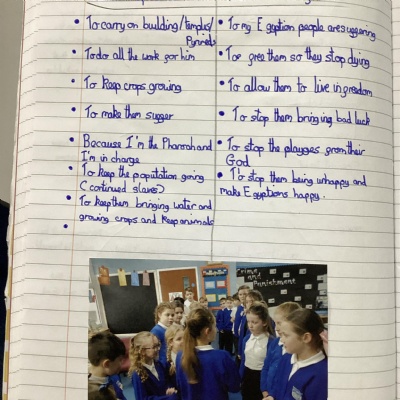 • To carry on building/temples/
Pyrmids
• Todo all the work for him
• To keep crops growing
• To make them sugger
• Because I'm the Pharoah and
I'm in charge
• To keep the population going
(continued slaves)
• To keep them bringing water and
growing crops and keep animals
•
• To my Egyption people are suggering
• To gree them so they stop dying
• To allow them to live in gredom
• To stop them bringing bad luck
• To stop the playges grom their
God
• To stop them being unhappy and
make Egyptions happy.
Crime
and
Punishment